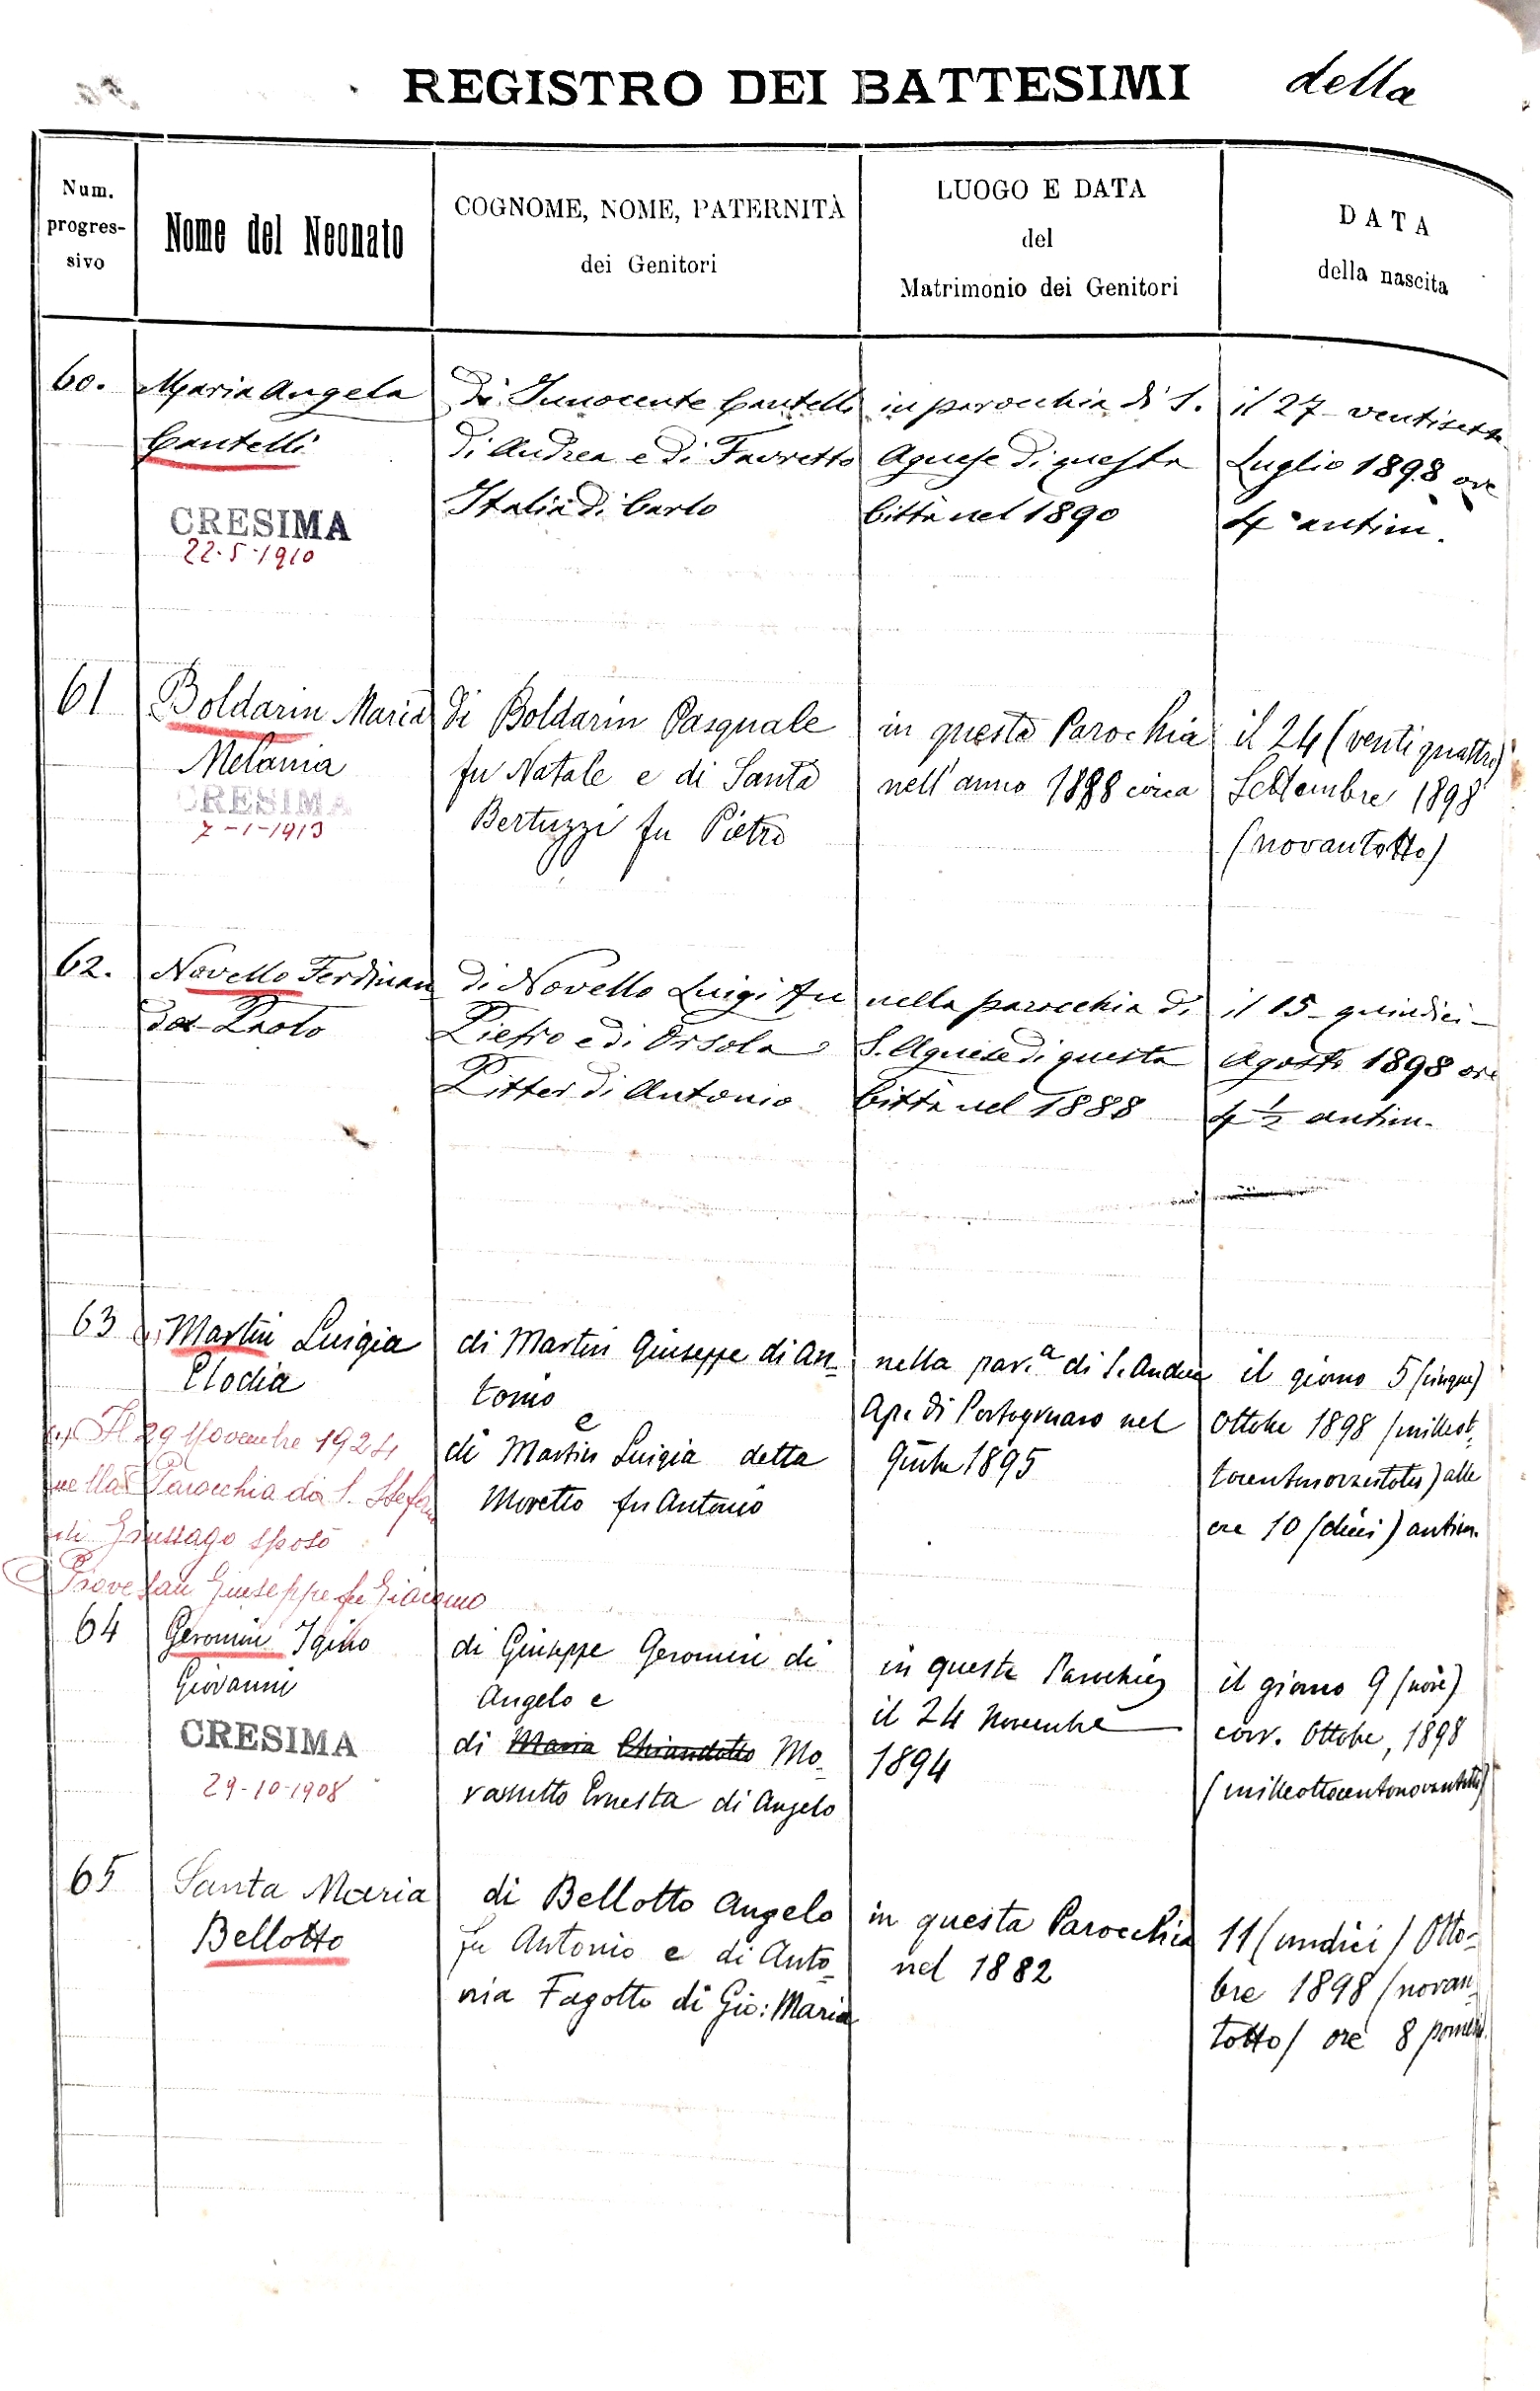 REGISTRO DEI BATTESIMI della
Num.
progres-
sivo
Nome del Neonato
COGNOME, NOME, PATERNITÀ
dei Genitori
LUOGO E DATA
del
Matrimonio dei Genitori
DATA
della nascita
60.
Maria Angela
Cantelli
CRESIMA
22-5-1910
di Innocente Cantelli
di Andrea e di Favretto
Italia di Carlo
in parocchia di S.
Agnese di questa
Città nel 1890
il 27 - ventisette
Luglio 1898 ore
4 antim.
61
Boldarin Maria
Melania
CRESIMA
7-1-1913
di Boldarin Pasquale
fu Natale e di Santa
Bertuzzi fu Pietro
in questa Parochia
nell'anno 1888 circa
il 24 (ventiquattro)
Settembre 1898
(novantotto)
62.
Novello Ferdinan
do-Paolo
di Novello Luigi fu
Pietro e di Orsola
Pitter di Antonio
nella parocchia di
S. Agnese di questa
Città nel 1888
il 15 - quindici -
Agosto 1898 ore
4 ½ antim.
63
Martin Luigia
Elodia
Il 29 Novembre 1924
nella Parocchia di S. Stefano
di Giussago sposò
Piovesan Giuseppe fu Giacomo
di Martin Giuseppe di An-
tonio
e
di Martin Luigia detta
Moretto fu Antonio
nella par.a di S. Andrea
Ap. di Portogruaro nel
1895
il giorno 5 (cinque)
Ottobre 1898 (milleot-
tocentonovantotto) alle
ore 10 (dieci) antim.
64
Geromin Igino
Giovanni
CRESIMA
29-10-1908
di Giuseppe Geromin di
Angelo e
di Maria Chiandotto Mo-
rassutto Ernesta di Angelo
in questa Parochia
il 24 Novembre
1894
il giorno 9 (nove)
corr. Ottobre, 1898
(milleottocentonovantotto)
65
Santa Maria
Bellotto
di Bellotto Angelo
fu Antonio e di Anto-
nia Fagotto di Gio: Maria
in questa Parocchia
nel 1882
11 (undici) Otto-
bre 1898 (novan-
totto) ore 8 pomer.